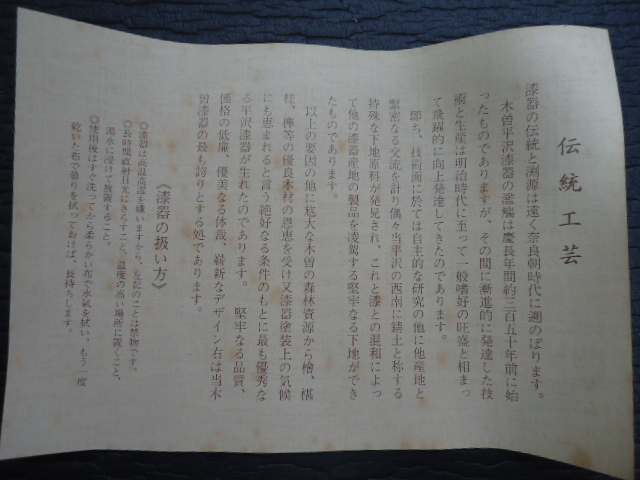 伝統工芸
漆器の伝統と渕源は遠く奈良朝時代に遡のぼります。
木曽平沢漆器の濫觴は慶長年間約三百五十年前に始
ったものでありますが、その間に漸進的に発達した技
術と生産は明治時代に至って一般嗜好の旺盛と相まっ
て飛躍的に向上発達してきたのであります。
即ち、技術面に於ては自主的な研究の他に他産地と
緊密なる交流を計り偶々当平沢の西南に錆土と称する
特殊な下地原料が発見され、これと漆との混和によっ
て他の漆器産地の製品を凌駕する堅牢なる下地ができ
たものであります。
以上の要因の他に尨大な木曽の森林資源から檜、椹
桂、欅等の優良木材の恩恵を受け又漆器塗装上の気候
にも恵まれると言う絶好なる条件のもとに最も優秀な
る平沢漆器が生れたのであります。 堅牢なる品質、
価格の低廉、優美なる体裁、嶄新なデザイン右は当木
曽漆器の最も誇りとする処であります。
《漆器の扱い方》
◎漆器は高温高湿を嫌いますから、左記のことは禁物です。
◎長時間直射日光にさらすこと、温度の高い場所に置くこと、
湯水に浸けて放置すること。
◎使用後はすぐ洗ってから柔らかい布で水氣を拭い、もう一度
乾いた布で曇りを拭っておけば、長持ちします。